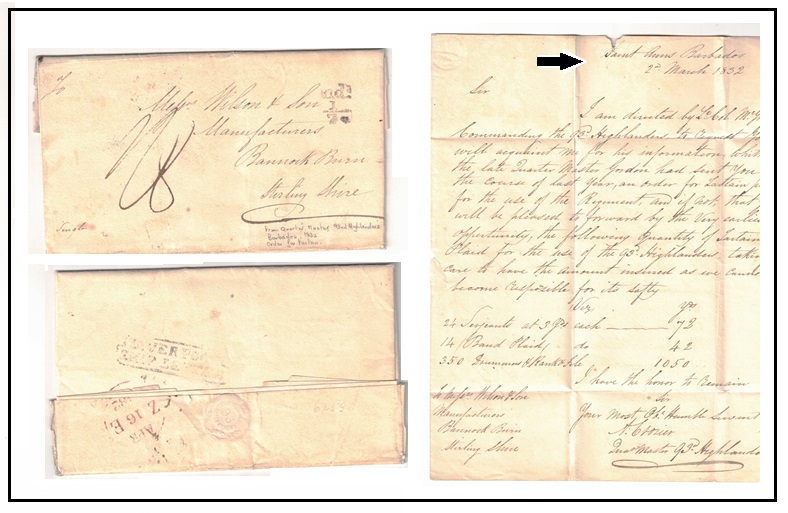 To
Messrs Wilson & Son
Manufacturers
Bannock Burn
Sterling Shire
from Quarter Master 93rd Highlanders
Barbados 1832
order for tartan
LIVERPOOL
SHIP LETTER
APR
Z 16 E
Saint Anns Barbados
2d March 1832
Sir
I am directed by Lt Col Mc
Commanding the 93d Highlanders to request
will acquaint me for his information, whet
the late Quarter Master Gordon had sent you
the course of last Year, an order for Tartan
for the use of the Regiment, and if not that
will be pleased to forward by the very earlie
opportunity, the following Quantity of Tartan
Plaid for the use of the 93d Highlanders, takin
care to have the amount insured as we cannot
become responsible for its safty
Viz Yds
24 Serjeants at 3 Yds each 72
14 (Band Plaid) do 42
350 Drummers & Rank & File 1050
I have the honor to remain
Sir
Your Most Obt Humble Servant
Quar Master 93d Highlande
Messrs Wilson & Son
Manufacturers
Bannock Burn
Stirling Shire